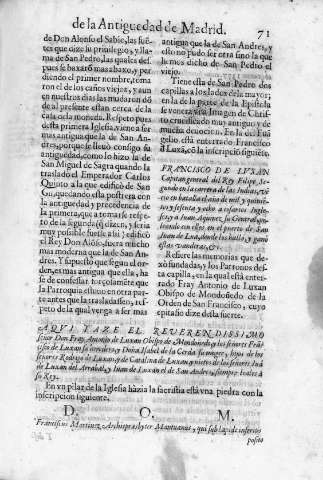 de la Antiguedad de Madrid. 71
de Don Alonso el Sabio, las fuë-
tes que dize su priuilegio, y lla-
ma de San Pedro, las quales des-
pues se baxarō mas abaxo, y per-
diendo el primer nombre, toma
ron el de los caños viejos, y aun
en nuestros dias las mudaron dō
de al presente estan cerca de la
casa de la moneda. Respeto pues
desta primera Iglesia viene a ser
mas antigua que la de San An-
dres, porque se lleuò consigo su
antiguedad, como lo hizo la de
San Miguel de Sagra quando la
trasladò el Emperador Carlos
Quinto a la que edificò de San
Gil, quedando esta postrera con
la antiguedad y precedencia de
la primera, que a tomarse respe-
to de la segunda (q̃ dizen, y seria
muy possible fuesse assi) edificò
el Rey Don Alōso, fuera mucho
mas moderna que la de San An-
dres. Y supuesto que segun el or-
den, es mas antigua que ella, ha
se de confessar forçosamēte que
la Parroquia estuuo en otra par-
te antes que la trasladassen, res-
peto de la qual venga a ser mas
antigua que la de San Andres, y
esto no pudo ser otra sino la que
hemos dicho de San Pedro el
viejo.
Tiene esta de San Pedro dos
capillas a los lados de la mayor;
en la de la parte de la Epistola
se venera vna Imagen de Chris-
to crucificado muy antigua y de
mucha deuocion. En la del Euā-
gelio está enterrado Francisco
de Luxan con la inscripcion siguiēte.
FRANCISCO DE LVXAN
Capitan general del Rey Felipe, Se-
gundo en la carrera de las Indias, vē-
cio en batalla el año de mil, y quinië-
tos y sesenta y ocho a cosarios Ingle-
ses, y a Juan Aquinez su General, pe-
leando con ellos en el puerto de San
Juan de Lua, donde los hallò, y ganò
estas vanderas, &c.
Refiere las memorias que de-
xò fundadas, y los Patronos des-
ta capilla, en la qual està enter-
rado Fray Antonio de Luxan
Obispo de Mondoñedo de la
Orden de San Francisco, cuyo
epitafio dize desta suerte.
AQVI YAZE EL REVERENDISSIMO
Señor Don Fray Antonio de Luxan Obispo de Mondoñedo, y los señores Frã-
cisco de Luxan su hermano, y Doña Isabel de la Cerda su muger, hijos de los
señores Rodrigo de Luxan, y de Catalina de Luxan, y nietos de los señores Iuā
de Luxan del Arrabal, y Iuan de Luxan el de San Andres, siempre leales à
su Rey.
En vn pilar de la Iglesia hàzia la sacristia està vna piedra con la
inscripcion siguiente.
D. O. M.
Franciscus Martinez, Archipresbyter Mantuanus, qui sub lapide inferius
posito